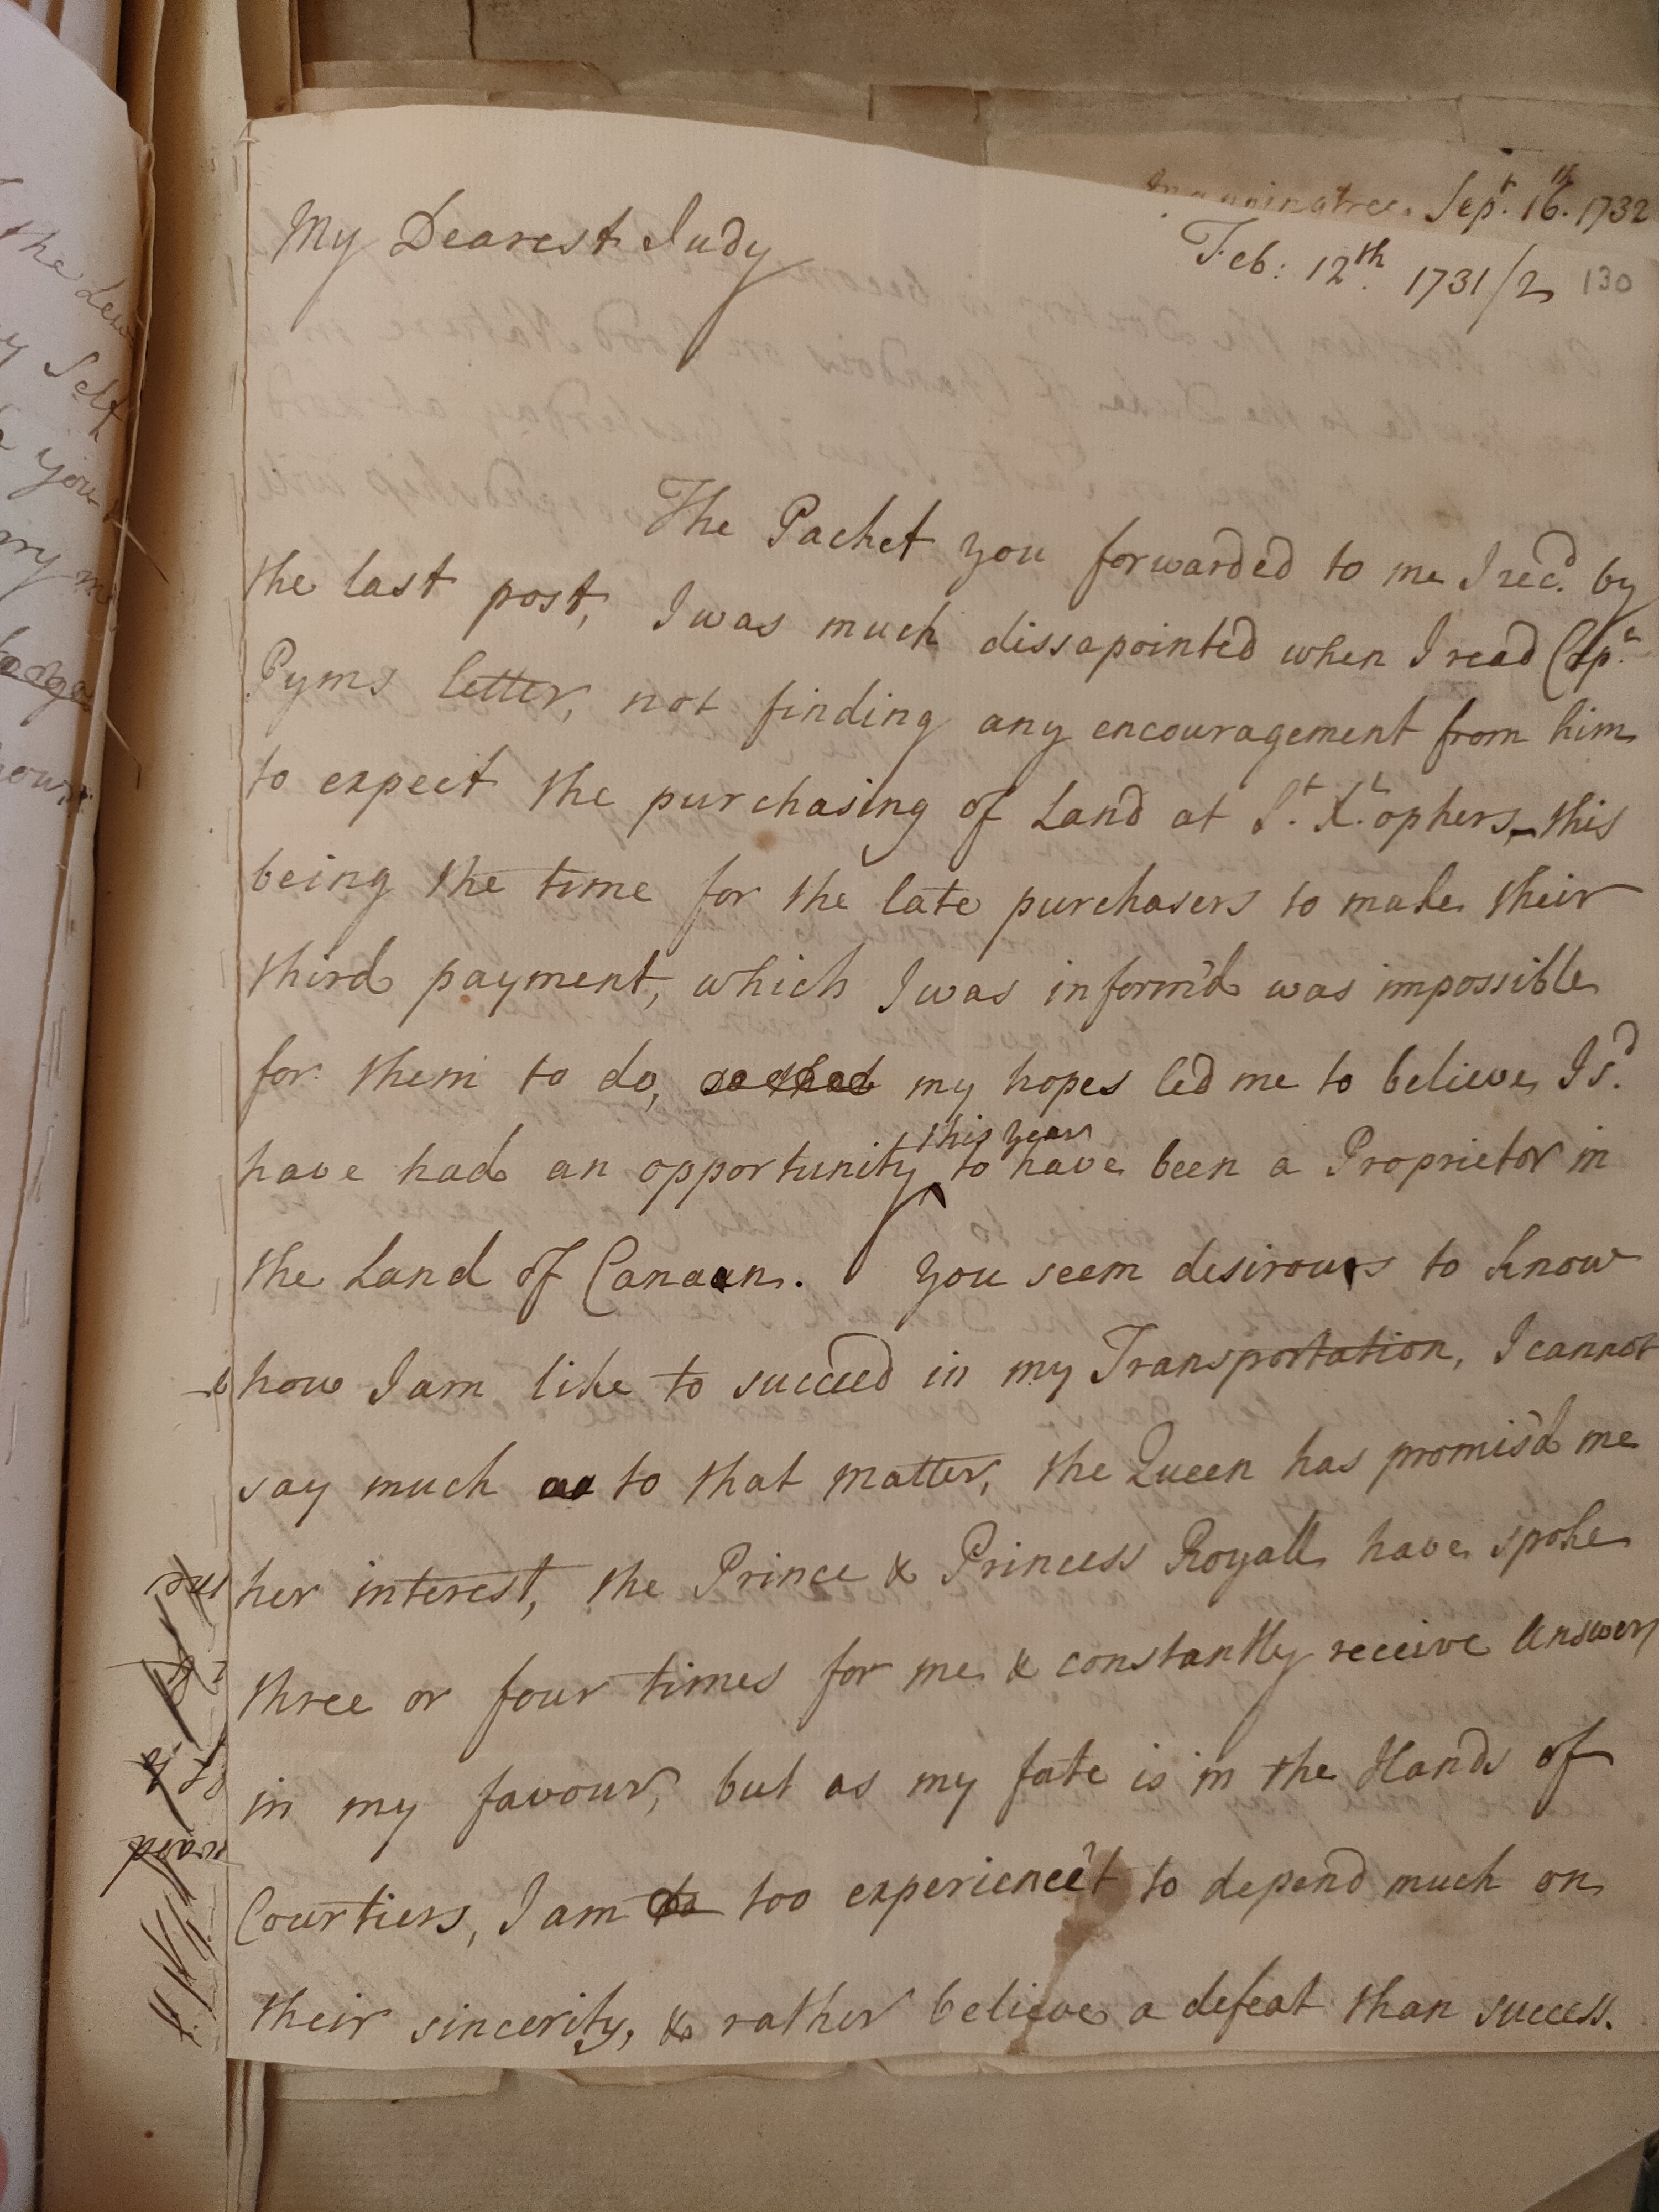 Sepᵗ. 16ᵗʰ. 1732
My Dearest Judy
Feb: 12ᵗʰ. 1731/2
130
The Packet you forwarded to me I recᵈ. by
the last post, I was much dissapointed when I read Capⁿ.
Pyms letter, not finding any encouragement from him
to expect the purchasing of Land at Sᵗ. Xᵗ.ophers, this
being the time for the late purchasers to make their
third payment, which I was inform'd was impossible
for them to do, my hopes led me to believe I sᵈ.
this year
have had an opportunity to have been a Proprietor in
the Land of Canaan. You seem desirous to know
how I am like to succeed in my Transportation, I cannot
say much as to that matter, the Queen has promis'd me
her interest, the Prince & Princess Royall have spoke
three or four times for me & constantly receive Answers
in my favour, but as my fate is in the Hands of
Courtiers, I am too experience't to depend much on
their sincerity, & rather believe a defeat than success.
the
Self
you
my